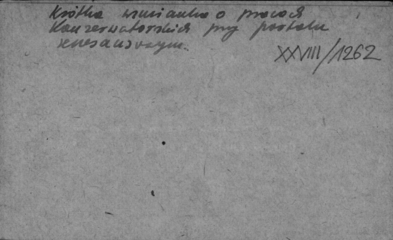 Krótka wzmianka o pracach
konserwatorskich przy portalu
XXVIII/1262